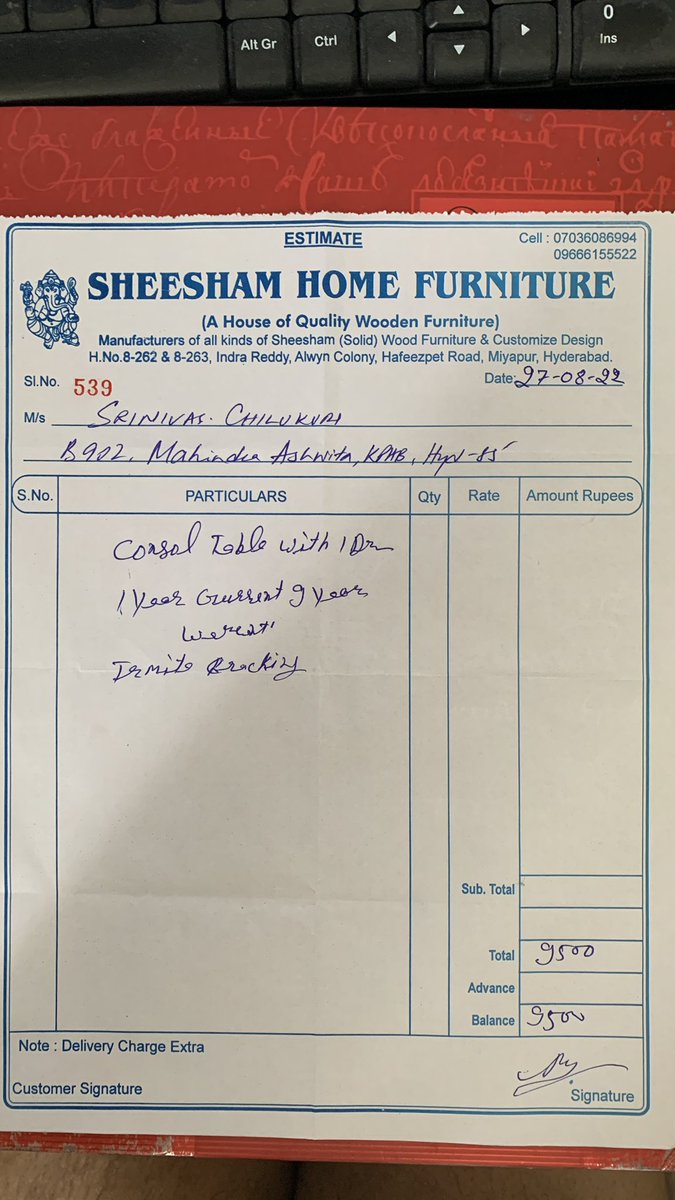 Alt Gr
Ctrl
0
Ins
ESTIMATE
Cell : 07036086994
09666155522
SHEESHAM HOME FURNITURE
(A House of Quality Wooden Furniture)
Manufacturers of all kinds of Sheesham (Solid) Wood Furniture & Customize Design
H.No.8-262 & 8-263, Indra Reddy, Alwyn Colony, Hafeezpet Road, Miyapur, Hyderabad.
Sl.No. 539
Date: 27-08-22
M/s SRINIVAS. CHILUKURI
B902, Mahindra Ashvita, KPHB, Hyd-85
S.No. PARTICULARS Qty Rate Amount Rupees
Consol Table with 1 Dr
1 Year Gurrent 9 Year
werent
Trmite Bracking
Sub. Total
Total 9500
Advance
Balance 9500
Note : Delivery Charge Extra
Customer Signature
Signature